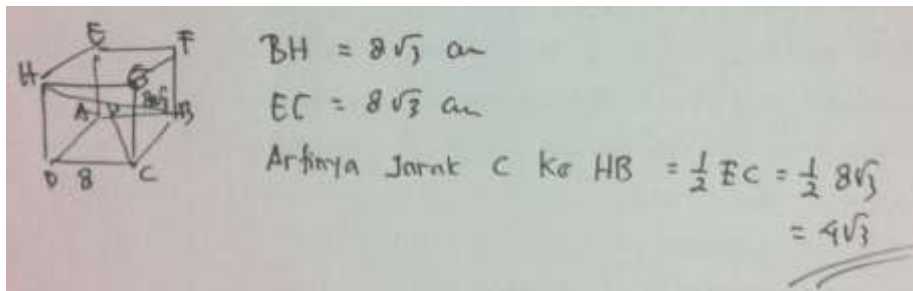 E F
H G
8√3
A P B
D 8 C
BH = 8√3 cm
EC = 8√3 cm
Artinya Jarak C Ke HB = 1/2 EC = 1/2 8√3
= 4√3